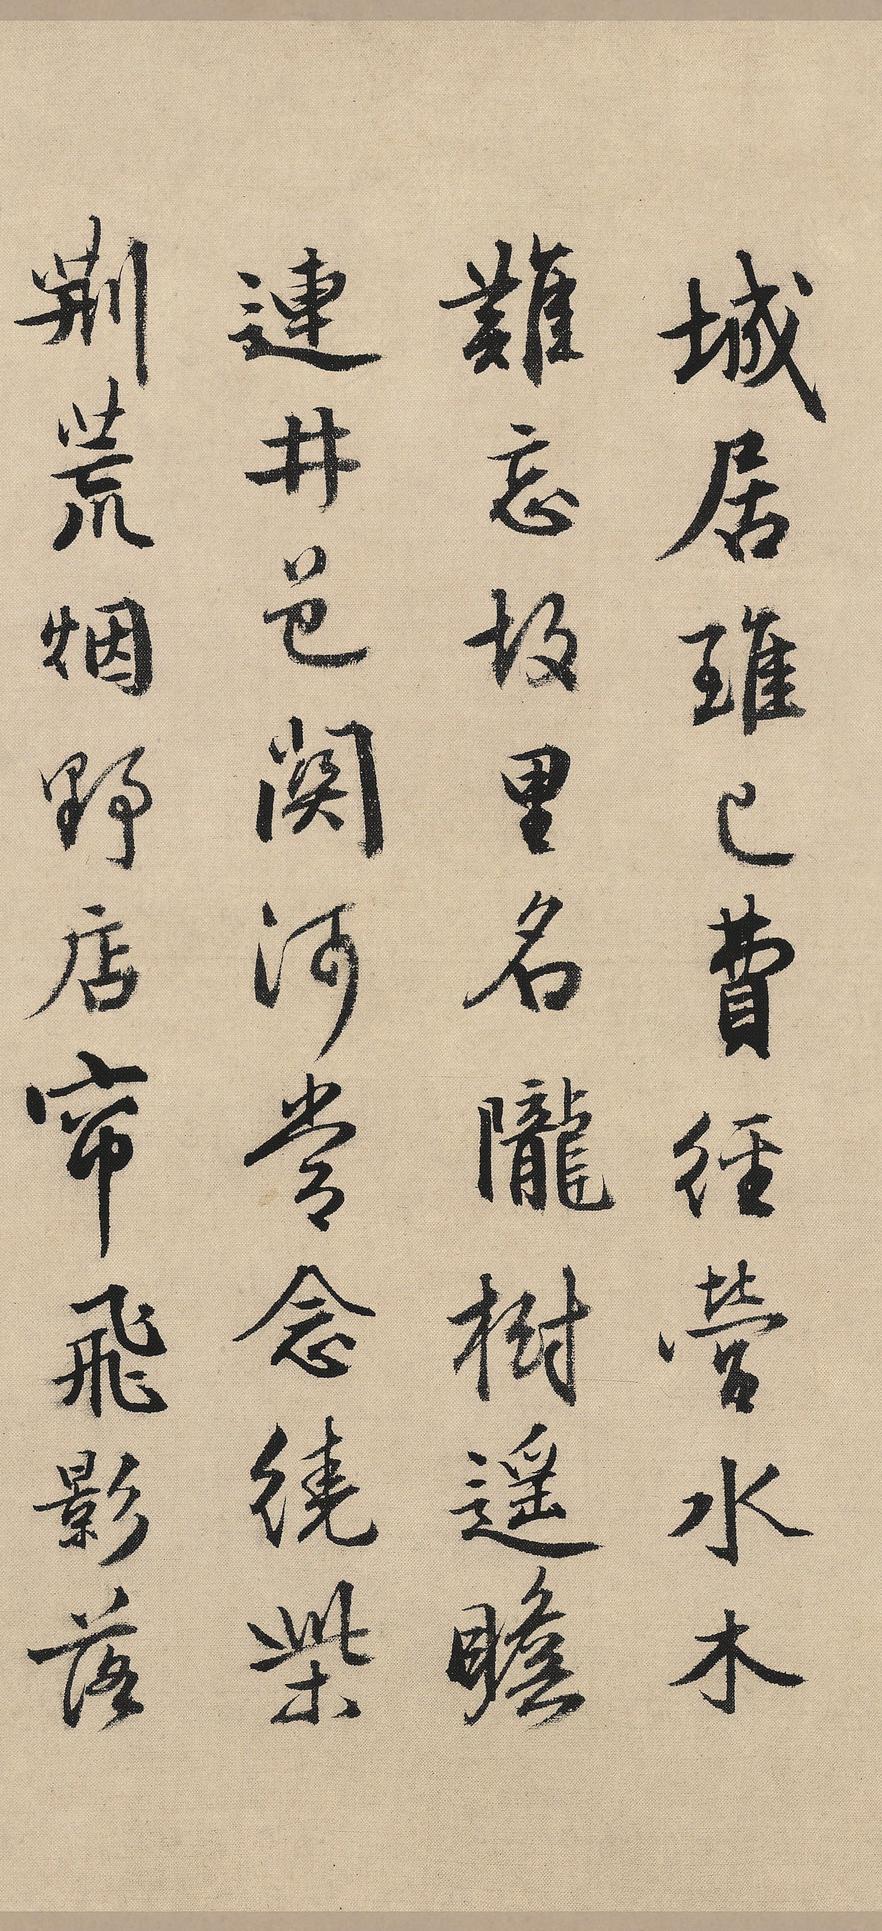 城居雖已費經營水木
難忘故里名隴樹遥瞻
連井邑関河常念繞柴
荆荒烟野店帘飛影落